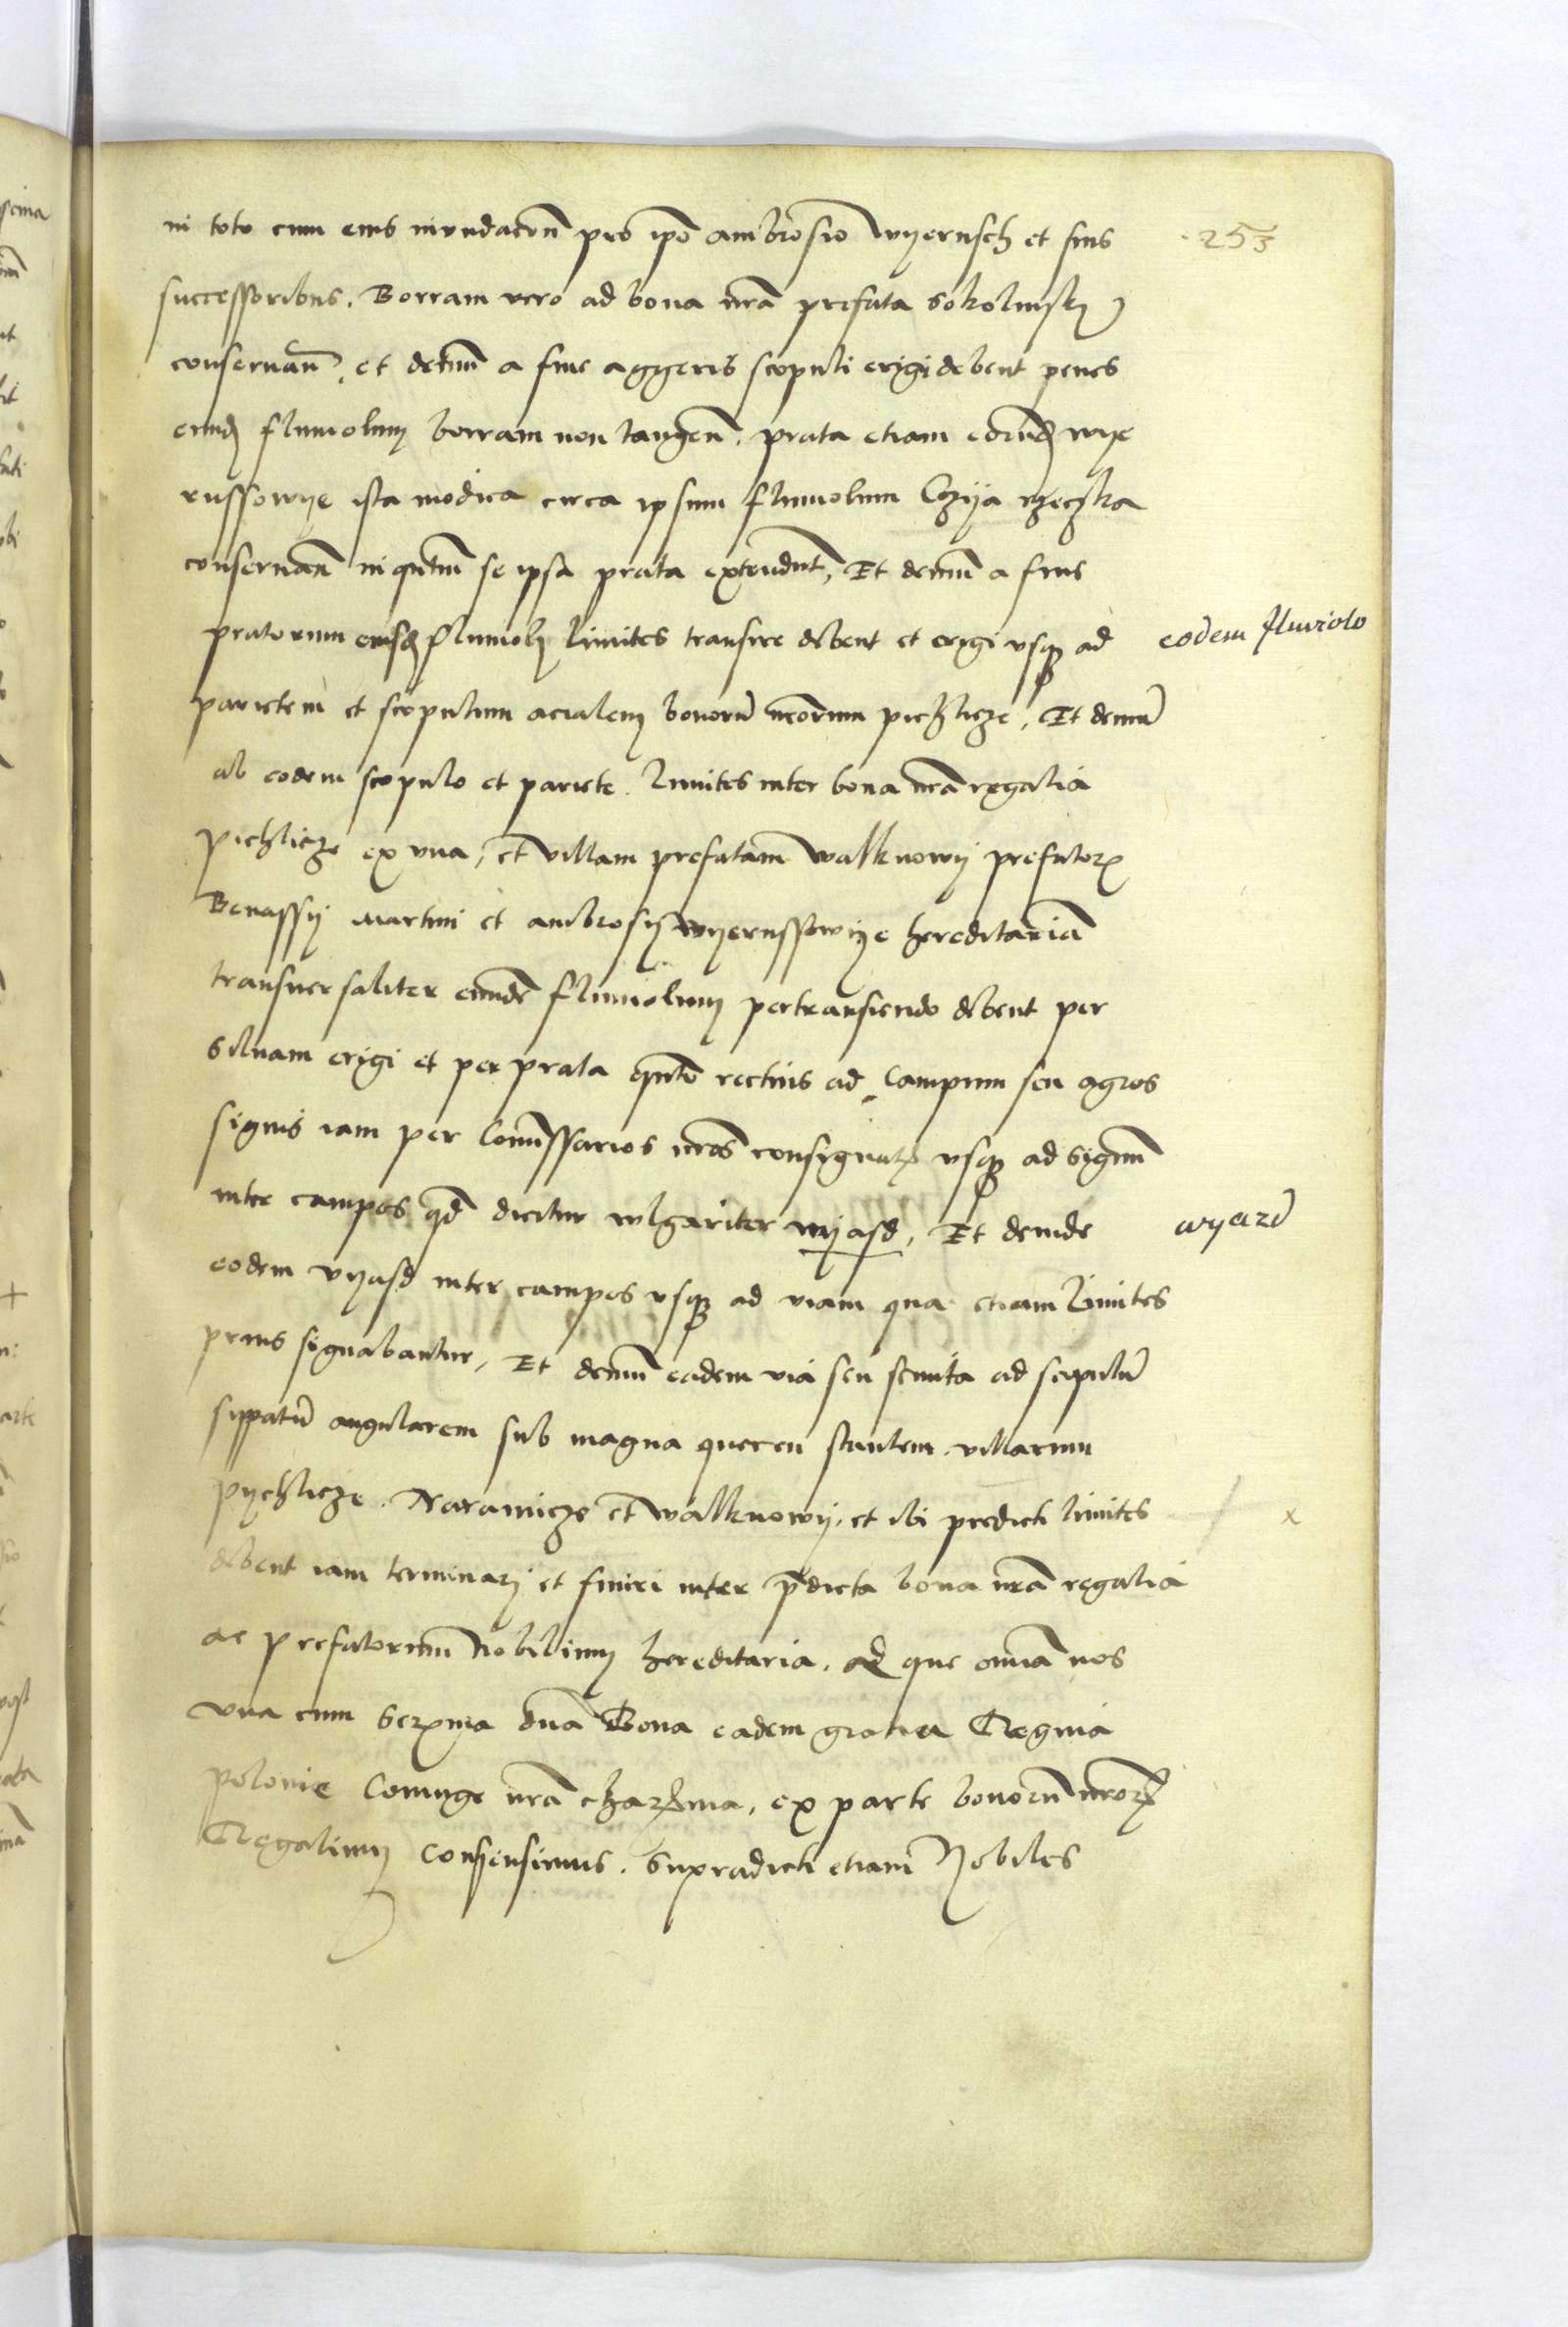 in toto cum eius inundacon̄ pro ip̄o ambrosio Wyerusch et suis
253
successoribus. Borram vero ad bona nr̄a prefata sokolnsky
conseruan̄. et demū a fine aggeris scopuli erigi debent penes
eund fluuiolum borram non tangen̄. prata etiam eorūd wye
russowye ista modica circa ipsum fluuiolum Czyja rzeczka
conseruan̄ inqn̄tū se ipsa prata extendunt, Et demū a fine
pratorum eiusd fluuioli limites transire debent et erigi vsq ad
eodem fluviolo
parietem et scopulum acialem bonorū nr̄orum pichlicze, Et demū
ab eodem scopulo et pariete. limites inter bona nr̄a regalia
pichlicze ex vna, et villam prefatam walknowy prefator
Benassy Martini et ambrosy Wyerussowye hereditariā
transuersaliter eundē fluuiolum pertransiendo debent per
siluam erigi et per prata qn̄to rectius ad campum seu agros
signis iam per Comissarios nr̄os consignat vsq ad signū
inter campos qd dicitur wlgariter wyasd, Et deinde
wyazd
eodem vyasd inter campos vsq ad viam qua etiam limites
prius signabantur, Et demū eadem via seu semita ad scopulū
sippatū angularem sub magna quercu stantem villarum
pychlicze. Naramicze et walknowy. et ibi predicti limites
x
debent iam terminari et finiri inter p̄dicta bona nr̄a regalia
ac prefatorum Nobilium hereditaria. ad que omnia nos
vna cum Serma dn̄a Bona eadem gracia Regina
polonie Coniuge nr̄a charma, ex parte bonorū nr̄or
Regalium consensimus. Supradicti etiam Nobiles